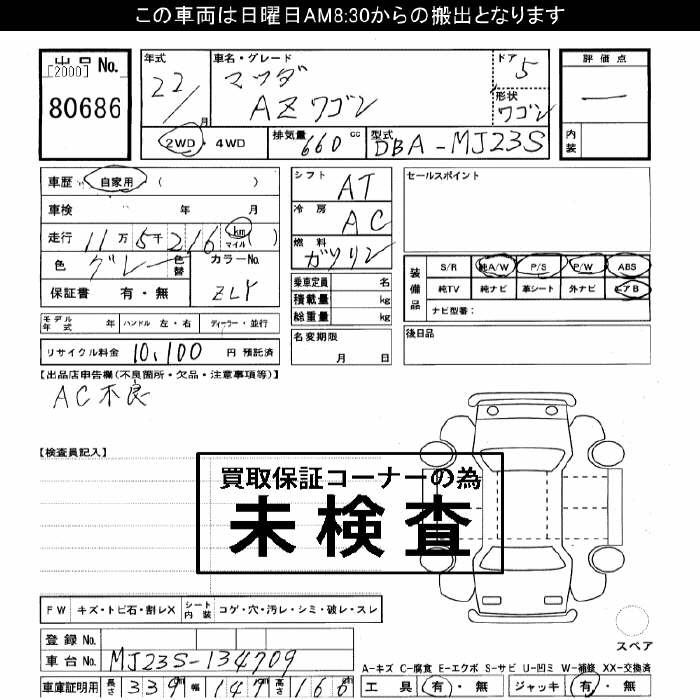 この車両は日曜日AM8:30からの搬出となります
出品 No.
[2000]
80686
年式
22/1
月
車名・グレード
マツダ
AZワゴン
ドア
5
形状
ワゴン
評価点
内装
2WD・4WD
排気量
660 cc
型式
DBA-MJ23S
車歴 自家用 ( )
車検 年 月
走行 11万5千216 km マイル ( )
色 グレー 色替
カラーNo.
ZLY
保証書 有・無
モデル年式 年 ハンドル 左・右 ディーラー・並行
リサイクル料金 10,100 円 預託済
シフト AT
冷房 AC
燃料 ガソリン
乗車定員 名
積載量 kg
総重量 kg
名変期限
月 日
セールスポイント
装備品
S/R 純A/W P/S P/W ABS
純TV 純ナビ 革シート 外ナビ エアB
ナビ型番:
後日品
【出品店申告欄(不良箇所・欠品・注意事項等)】
AC不良
【検査員記入】
買取保証コーナーの為
未検査
FW キズ・トビ石・割レX シート内装 コゲ・穴・汚レ・シミ・破レ・スレ
登録 No.
車台 No. MJ23S-134709
車庫証明用 長さ 339 幅 147 高さ 166
スペア
A-キズ C-腐食 E-エクボ S-サビ U-凹ミ W-補修 XX-交換済
工具 有・無 ジャッキ 有・無